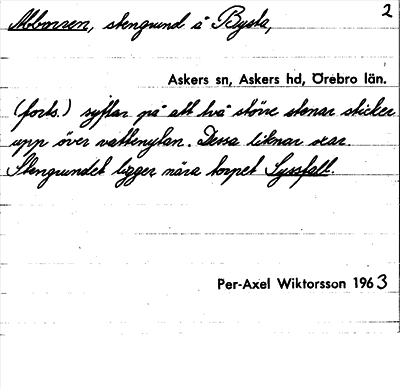 2
Abborren, stengrund å Bysta,
Askers sn, Askers hd, Örebro län.
(forts.) syftar på att två större stenar sticker
upp över vattenytan. Dessa liknar oxar.
Stengrundet ligger nära torpet Syssfall.
Per-Axel Wiktorsson 1963